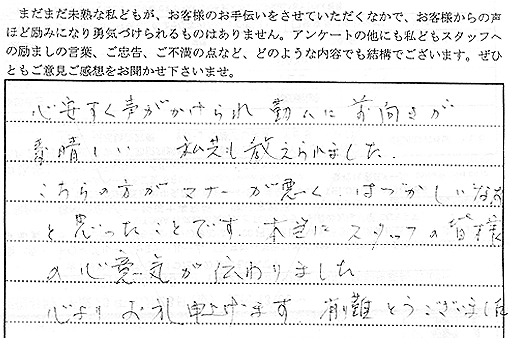 まだまだ未熟な私どもが、お客様のお手伝いをさせていただくなかで、お客様からの声
ほど励みになり勇気づけられるものはありません。アンケートの他にも私どもスタッフへ
の励ましの言葉、ご忠告、ご不満の点など、どのような内容でも結構でございます。ぜひ
ともご意見ご感想をお聞かせ下さいませ。
心安すく声がかけられ 勤人に 前向きが
素晴しい 私共も教えられました.
こちらの方がマナーが悪く、はづかしいなあ
と思ったことです. 本当に スタッフの皆様
の心意気が伝わりました
心より お礼申上げます. 有難とうございました